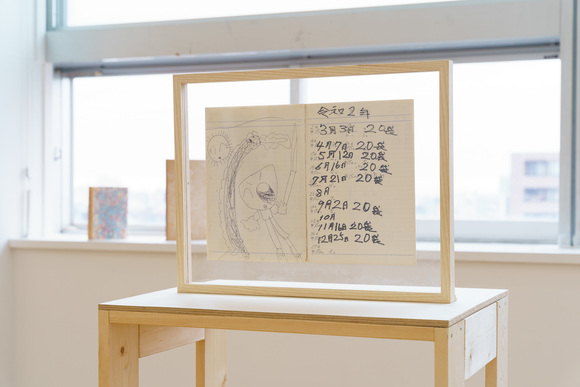 令和2年
3月3日 20袋
4月7日 20袋
5月12日 20袋
6月16日 20袋
7月21日 20袋
8月
9月2日 20袋
10月
11月16日 20袋
12月25日 20袋